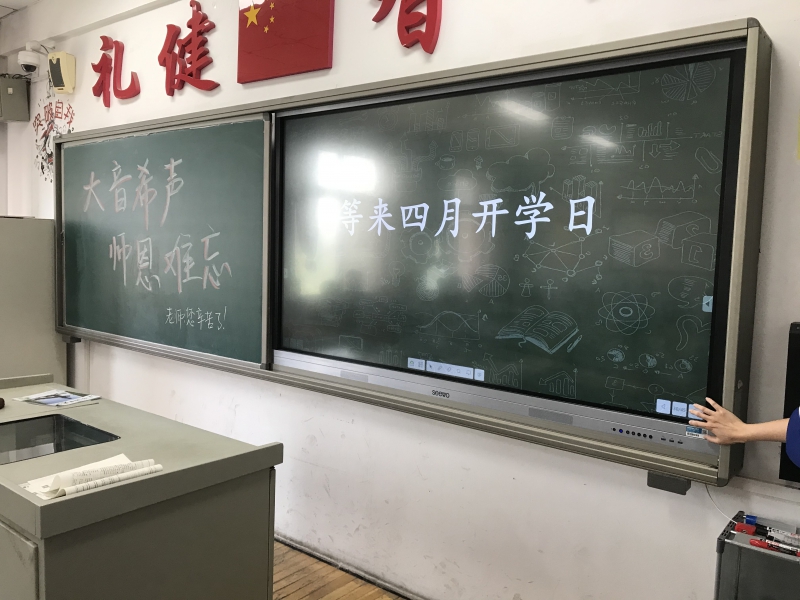 礼 健
大音希声
师恩难忘
老师您辛苦了!
等来四月开学日
seewo